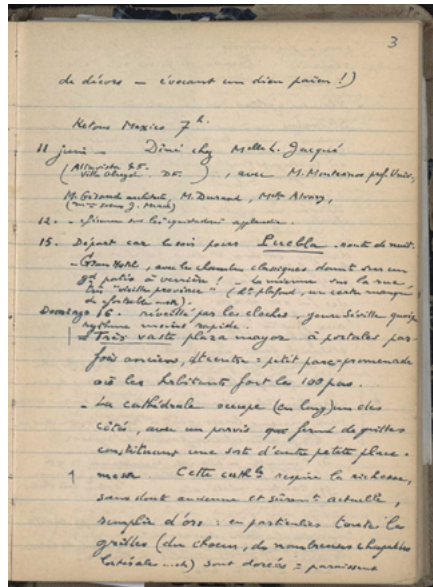 3
de décors — évoquant un dieu païen !)
Retour Mexico 7h.
11 juin — Dîné chez Melle L. Jacqué
(Altavista 85.
Villa Obregd DF.), avec M. Montearnos prof. Univ.,
M. Girand architecte, M. Durand, Melle Alvarez,
12. —
15. Départ car le soir pour Puebla. route de nuit.
— Gran Hotel, avec les chambres classiques donnant sur un
gd patio à verrière ! — la mienne sur la rue,
très "vieille province" (ht plafond, un certain manque
de confortable etc).
Domingo 16. réveillé par les cloches, genre Séville quoique
rythme moins rapide.
— Très vaste plaza mayor à portales par-
fois anciens, et centre = petit parc-promenade
où les habitants font les 100 pas.
— La cathédrale occupe (en long) un des
côtés, avec un parvis que ferment des grilles
constituant une sorte d'autre petite place.
messe. Cette cathle respire la richesse,
sans doute ancienne et sûrent actuelle,
remplie d'ors : en particulier toutes les
grilles (du chœur, des nombreuses chapelles
latérales etc) sont dorées = paraissent